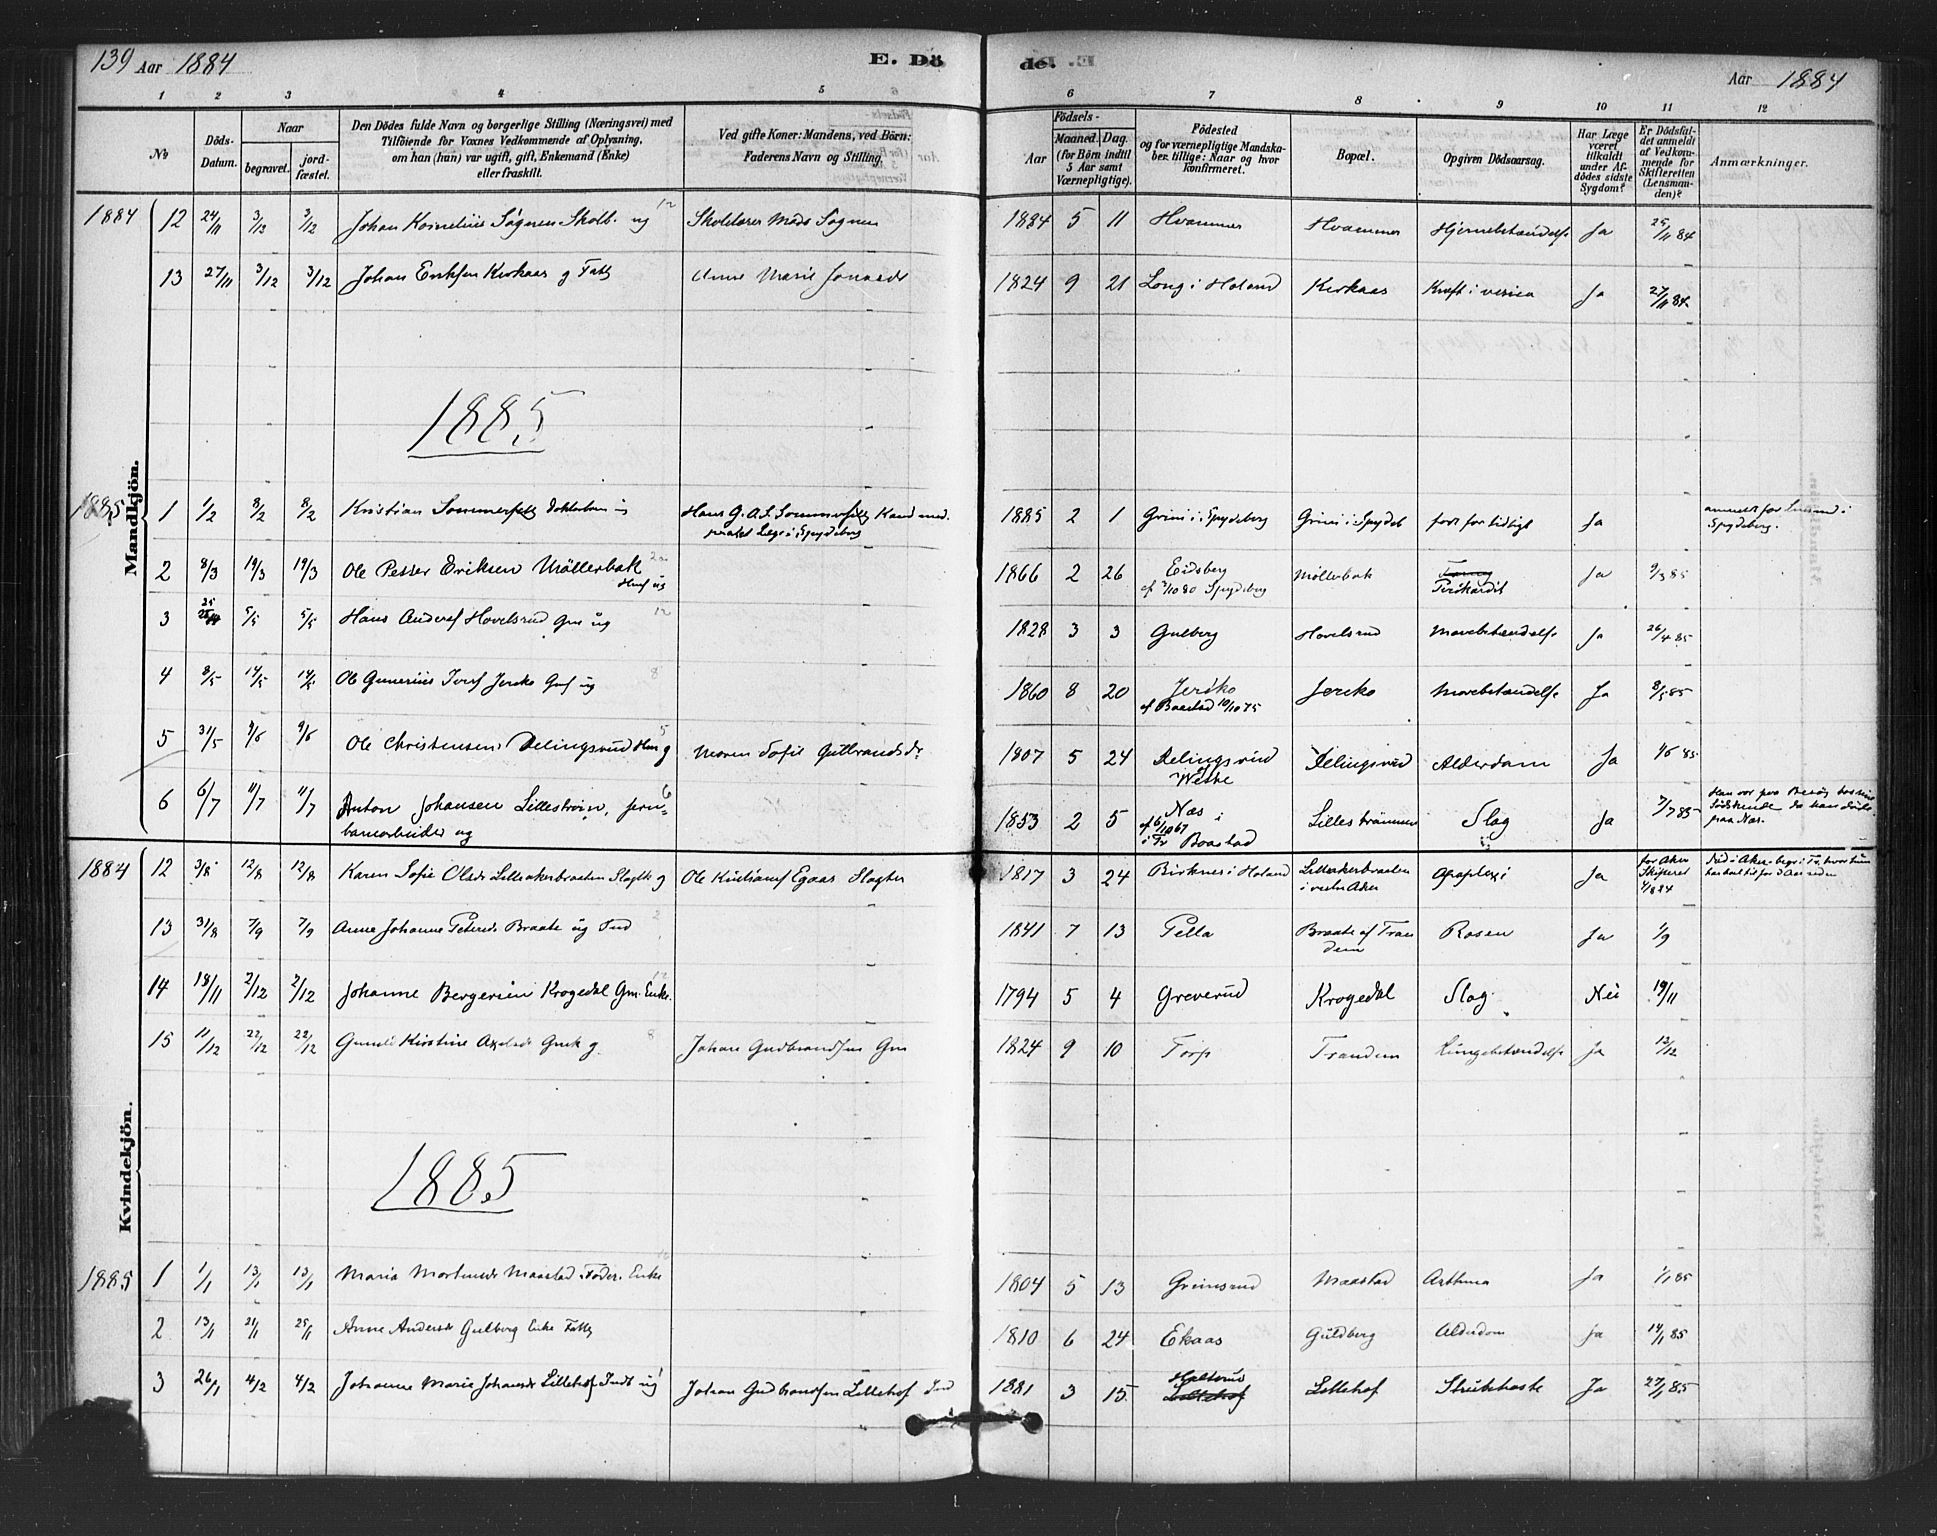 139 Aar 1884 E. Dö
de. Aar 1884
1 2 3 4 5 6 7 8 9 10 11 12
No
Döds-Datum.
Naar
begravet.
jord-fæstet.
Den Dödes fulde Navn og borgerlige Stilling (Næringsvei) med
Tilföiende for Voxnes Vedkommende af Oplysning,
om han (hun) var ugift, gift, Enkemand (Enke)
eller fraskilt.
Ved gifte Koner: Mandens, ved Börn:
Faderens Navn og Stilling.
Födsels-
Aar
Maaned. Dag.
(for Börn indtil
5 Aar samt
Værnepligtige).
Födested
og for værnepligtige Mandska-
ber tillige: Naar og hvor
konfirmeret.
Bopæl.
Opgiven Dödsaarsag.
Har Læge
været
tilkaldt
under Af-
dödes sidste
Sygdom?
Er Dödsfal-
det anmeldt
af Vedkom-
mende for
Skifteretten
(Lensman-
den)?
Anmærkninger.
Mandkjön.
1884 12 24/11 3/12 3/12 Johan Kornelius Sögnen Skolb. ug 12 Skolelærer Mads Sögnen 1884 5 11 Hvammer Hvammer Hjernebetændelse Ja 25/11 84
13 27/11 3/12 3/12 Johan Eriksen Kirkaas g Fattg Anne Marie 1824 9 21 Long i Höland Kirkaas Kræft i vesica Ja 27/11 84
1885
1885 1 1/2 8/2 8/2 Kristian Sommerfeldt Doktorbarn ug Hans G. A. S. Sommerfeldt Kand med. 1885 2 1 Grini i Spydeberg Grini i Spydeb født for tidligt Ja anmeldt for Lensmd i
prakt Læge i Spydeberg Spydeberg.
2 8/3 19/3 19/3 Ole Petter Eriksen Möllerbak 1866 2 26 Eidsberg Möllerbak Ja 9/3 85
Husf ug cf 3/10 80 Spydeberg
3 25 5/5 5/5 Hans Andersf Hovelsrud Gm ug 12 1828 3 3 Gulberg Hovelsrud Mavebetændelse Ja 26/4 85
4 8/5 14/5 14/5 Ole Gunerius Iversf Jeriko Gsf ug 8 1860 8 20 Jeriko Jeriko Mavebetændelse Ja 8/5 85
cf Baastad 10/10 75
5 31/5 9/6 9/6 Ole Christensen Delingsrud Hsm g 5 Maren Sofie Gulbrandsdr 1807 5 24 Delingsrud Delingsrud Alderdom Ja 1/6 85
6 6/7 11/7 11/7 Anton Johansen Lilleström, jern- 6 1853 2 5 Næs i Lilleströmmen Slag Ja 7/7 85 Han var paa Besög hos sine
banearbeider ug cf 6/10 67 Södskende da han döde
i Tr Baastad paa Næs.
1884 12 3/8 12/8 12/8 Karen Sofie Olsdr Lilleakerbraaten Slagtk g Ole Kristiansf Egaas Slagter 1817 3 24 Birknes i Höland Lilleakerbraaten Apoplexi Ja for Aker
i vestre Aker Skifteret
4/8 84
13 31/8 7/9 7/9 Anne Johanne Petersdr Braate ug Ind 2 1841 7 13 Pella Braate af Tran Rosen Ja 1/9
dem
14 18/11 2/12 2/12 Johanne Bergersen Krogedal Gm. Enke. 12 1794 5 4 Greverud Krogedal Slag. Nei 19/11
15 11/12 22/12 22/12 Gunild Kirstine Axelsdr Gmk g 8 Johan Gudbrandsen Gm 1824 9 10 Torp Trandem Lungebetændelse Ja 12/12
Kvindekjön.
1885
1885 1 1/1 13/1 13/1 Maria Mortensdr Maastad Föder. Enke 1804 5 13 Grimsrud Maastad Asthma Ja 1/1 85
2 13/1 21/1 25/1 Anne Andersdr Gulberg Enke Fattg 1810 6 24 Ekaas Guldberg Alderdom Ja 14/1 85
3 26/1 4/2 4/2 Johanne Marie Johansdr Lillehof Indt ug 1 Johan Gudbrandsen Lillehof Ind 1881 3 15 Lillehof Strubehoste Ja 27/1 85